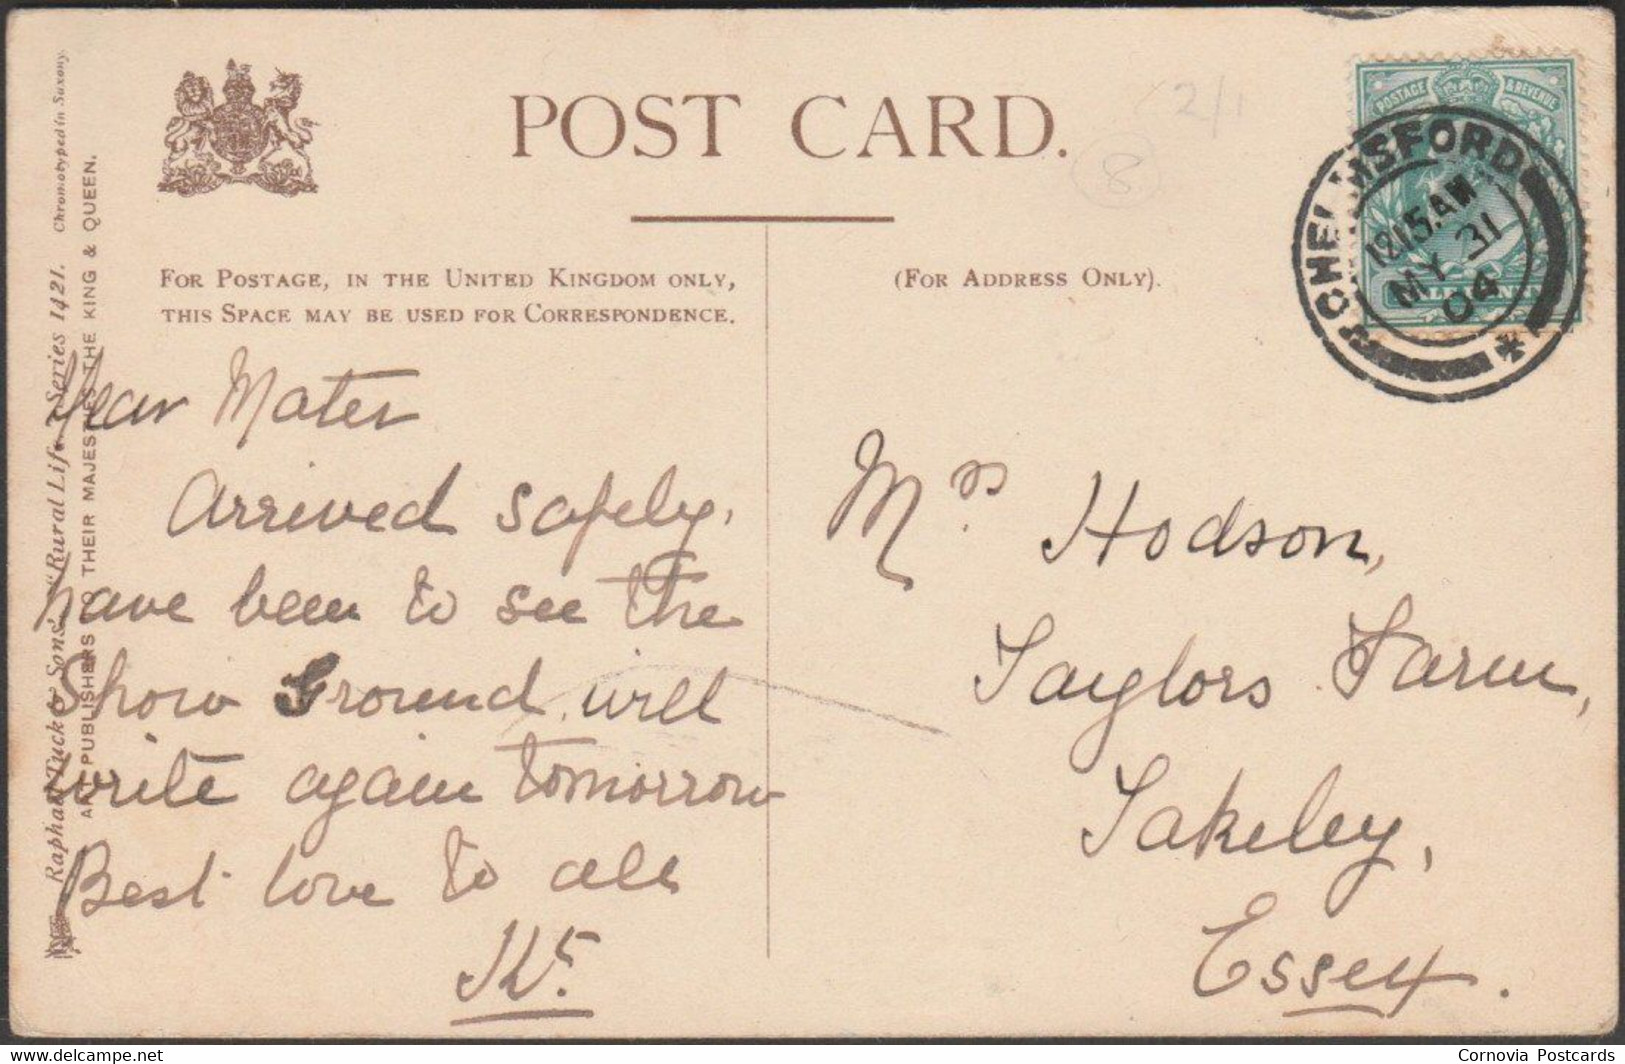 POST CARD.
2/1
8
POSTAGE & REVENUE
CHELMSFORD
12.15.AM
MY 31
04
FOR POSTAGE, IN THE UNITED KINGDOM ONLY,
THIS SPACE MAY BE USED FOR CORRESPONDENCE.
(FOR ADDRESS ONLY).
Raphael Tuck & Sons' "Rural Life" Series 1421. Chromotyped in Saxony.
ART PUBLISHERS TO THEIR MAJESTIES THE KING & QUEEN.
Dear Mater
Arrived safely,
have been to see the
Show Ground, will
write again tomorrow
Best love to all
Mrs Hodson,
Taylors Farm,
Takeley,
Essex.
Cornovia Postcards
delcampe.net